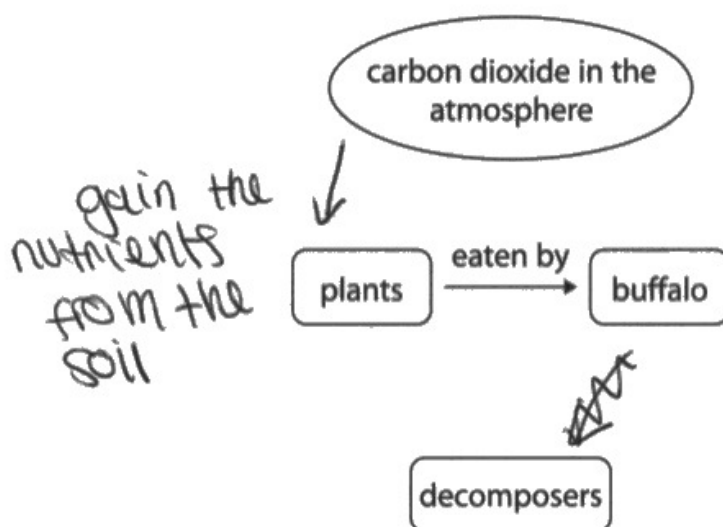 carbon dioxide in the
atmosphere
gain the
nutrients
from the
soil
plants
eaten by
buffalo
decomposers